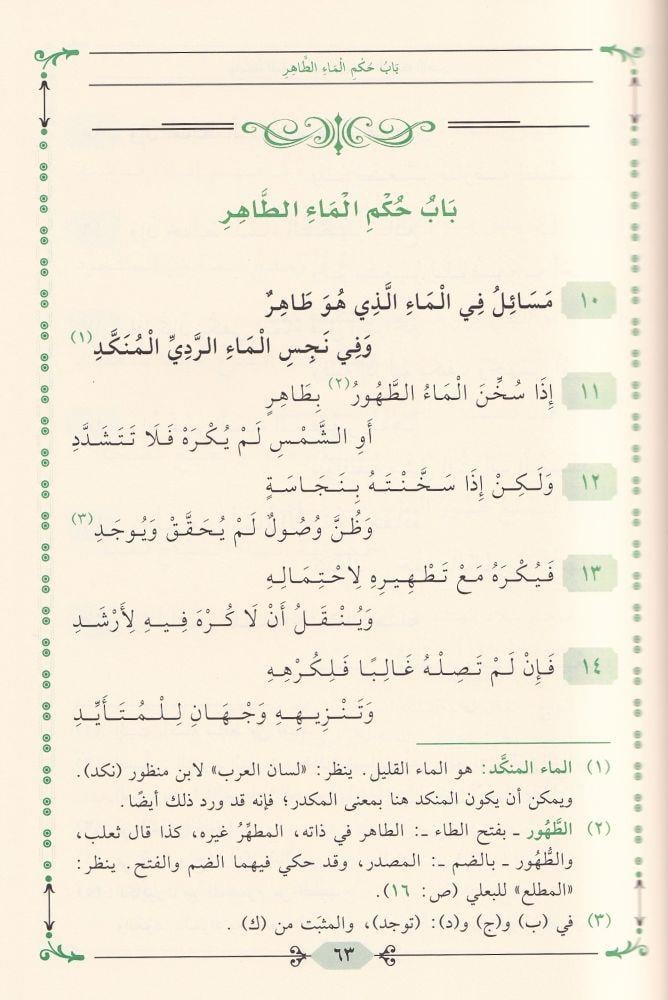 بَابُ حُكْمِ الْمَاءِ الطَّاهِرِ
بَابُ حُكْمِ الْمَاءِ الطَّاهِرِ
١٠ مَسَائِلُ فِي الْمَاءِ الَّذِي هُوَ طَاهِرٌ
وَفِي نَجِسِ الْمَاءِ الرَّدِيِّ الْمُنَكَّدِ(١)
١١ إِذَا سُخِّنَ الْمَاءُ الطَّهُورُ(٢) بِطَاهِرٍ
أَوِ الشَّمْسِ لَمْ يُكْرَهْ فَلَا تَتَشَدَّدِ
١٢ وَلَكِنْ إِذَا سَخَّنْتَهُ بِنَجَاسَةٍ
وَظُنَّ وُصُولٌ لَمْ يُحَقَّقْ وَيُوجَدِ(٣)
١٣ فَيُكْرَهُ مَعْ تَطْهِيرِهِ لِاحْتِمَالِهِ
وَيُنْقَلُ أَنْ لَا كُرْهَ فِيهِ لِأَرْشَدِ
١٤ فَإِنْ لَمْ تَصِلْهُ غَالِبًا فَلِكُرْهِهِ
وَتَنْزِيهِهِ وَجْهَانِ لِلْمُتَأَيِّدِ
(١) الماء المنكَّد: هو الماء القليل. ينظر: «لسان العرب» لابن منظور (نكد).
ويمكن أن يكون المنكد هنا بمعنى المكدر؛ فإنه قد ورد ذلك أيضًا.
(٢) الطَّهُور ـ بفتح الطاء ـ: الطاهر في ذاته، المطهِّرُ غيره، كذا قال ثعلب،
والطُّهُور ـ بالضم ـ: المصدر، وقد حكي فيهما الضم والفتح. ينظر:
«المطلع» للبعلي (ص: ١٦).
(٣) في (ب) و(ج) و(د): (توجد)، والمثبَت من (ك) .
٦٣